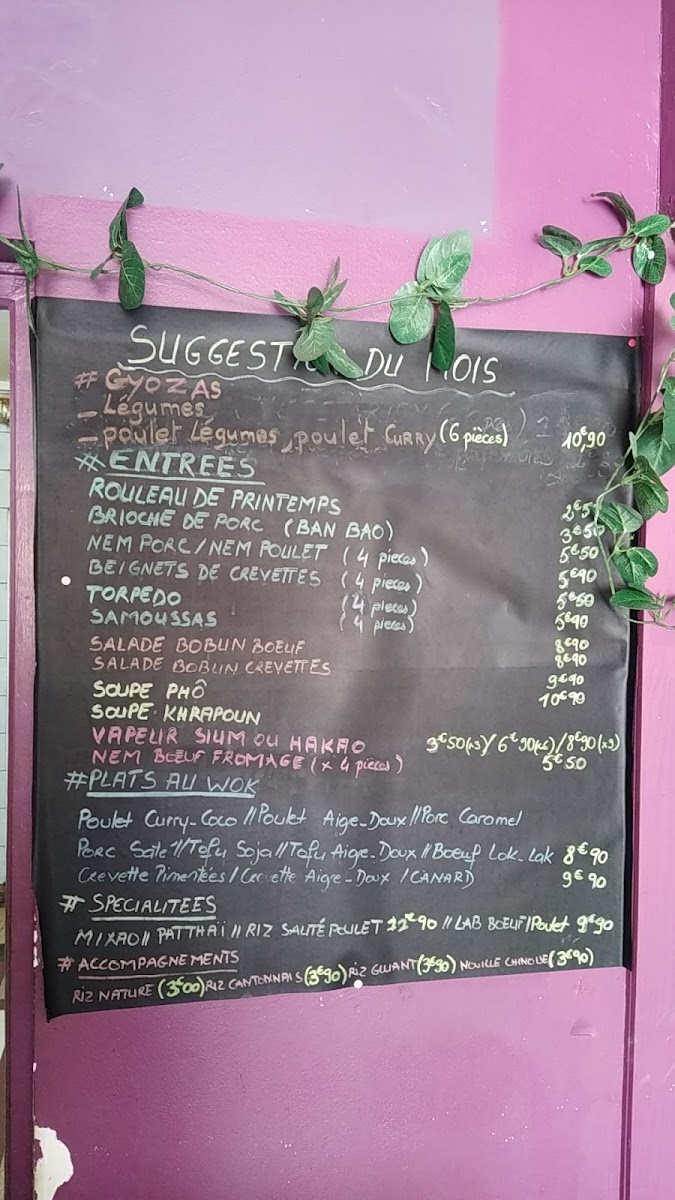 SUGGESTI DU MOIS
# GYOZAS
- Légumes
- poulet légumes, poulet CURRY (6 pièces) 10,€90
# ENTREES
ROULEAU DE PRINTEMPS 2€5
BRIOCHE DE PORC (BAN BAO) 3€50
NEM PORC/NEM POULET (4 pieces) 5€50
BEIGNETS DE CREVETTES (4 pieces) 5€90
TORPEDO (4 pieces) 5€50
SAMOUSSAS (4 pieces) 5€90
SALADE BOBUN BOEUF 8€90
SALADE BOBUN CREVETTES 8€90
SOUPE PHÔ 9€90
SOUPE KHRAPOUN 10€90
VAPEUR SIUM OU HAKAO 3€50(x3)/6€90(x6)/8€90(x9)
NEM BŒUF FROMAGE (x 4 pieces) 5€50
# PLATS AU WOK
Poulet Curry-Coco // Poulet Aige-Doux // Porc Caramel
Porc Saté // Tofu Soja // Tofu Aige-Doux // Boeuf Lok-Lak 8€90
Crevette Pimentées / Crevette Aige-Doux / CANARD 9€90
# SPECIALITEES
MIXAO // PATTHAÏ // RIZ SAUTÉ POULET 11€90 // LAB BOEUF/Poulet 9€90
# ACCOMPAGNEMENTS
RIZ NATURE (3€00) RIZ CANTONNAIS (3€90) RIZ GLUANT (3€90) NOUILLE CHINOISE (3€90)